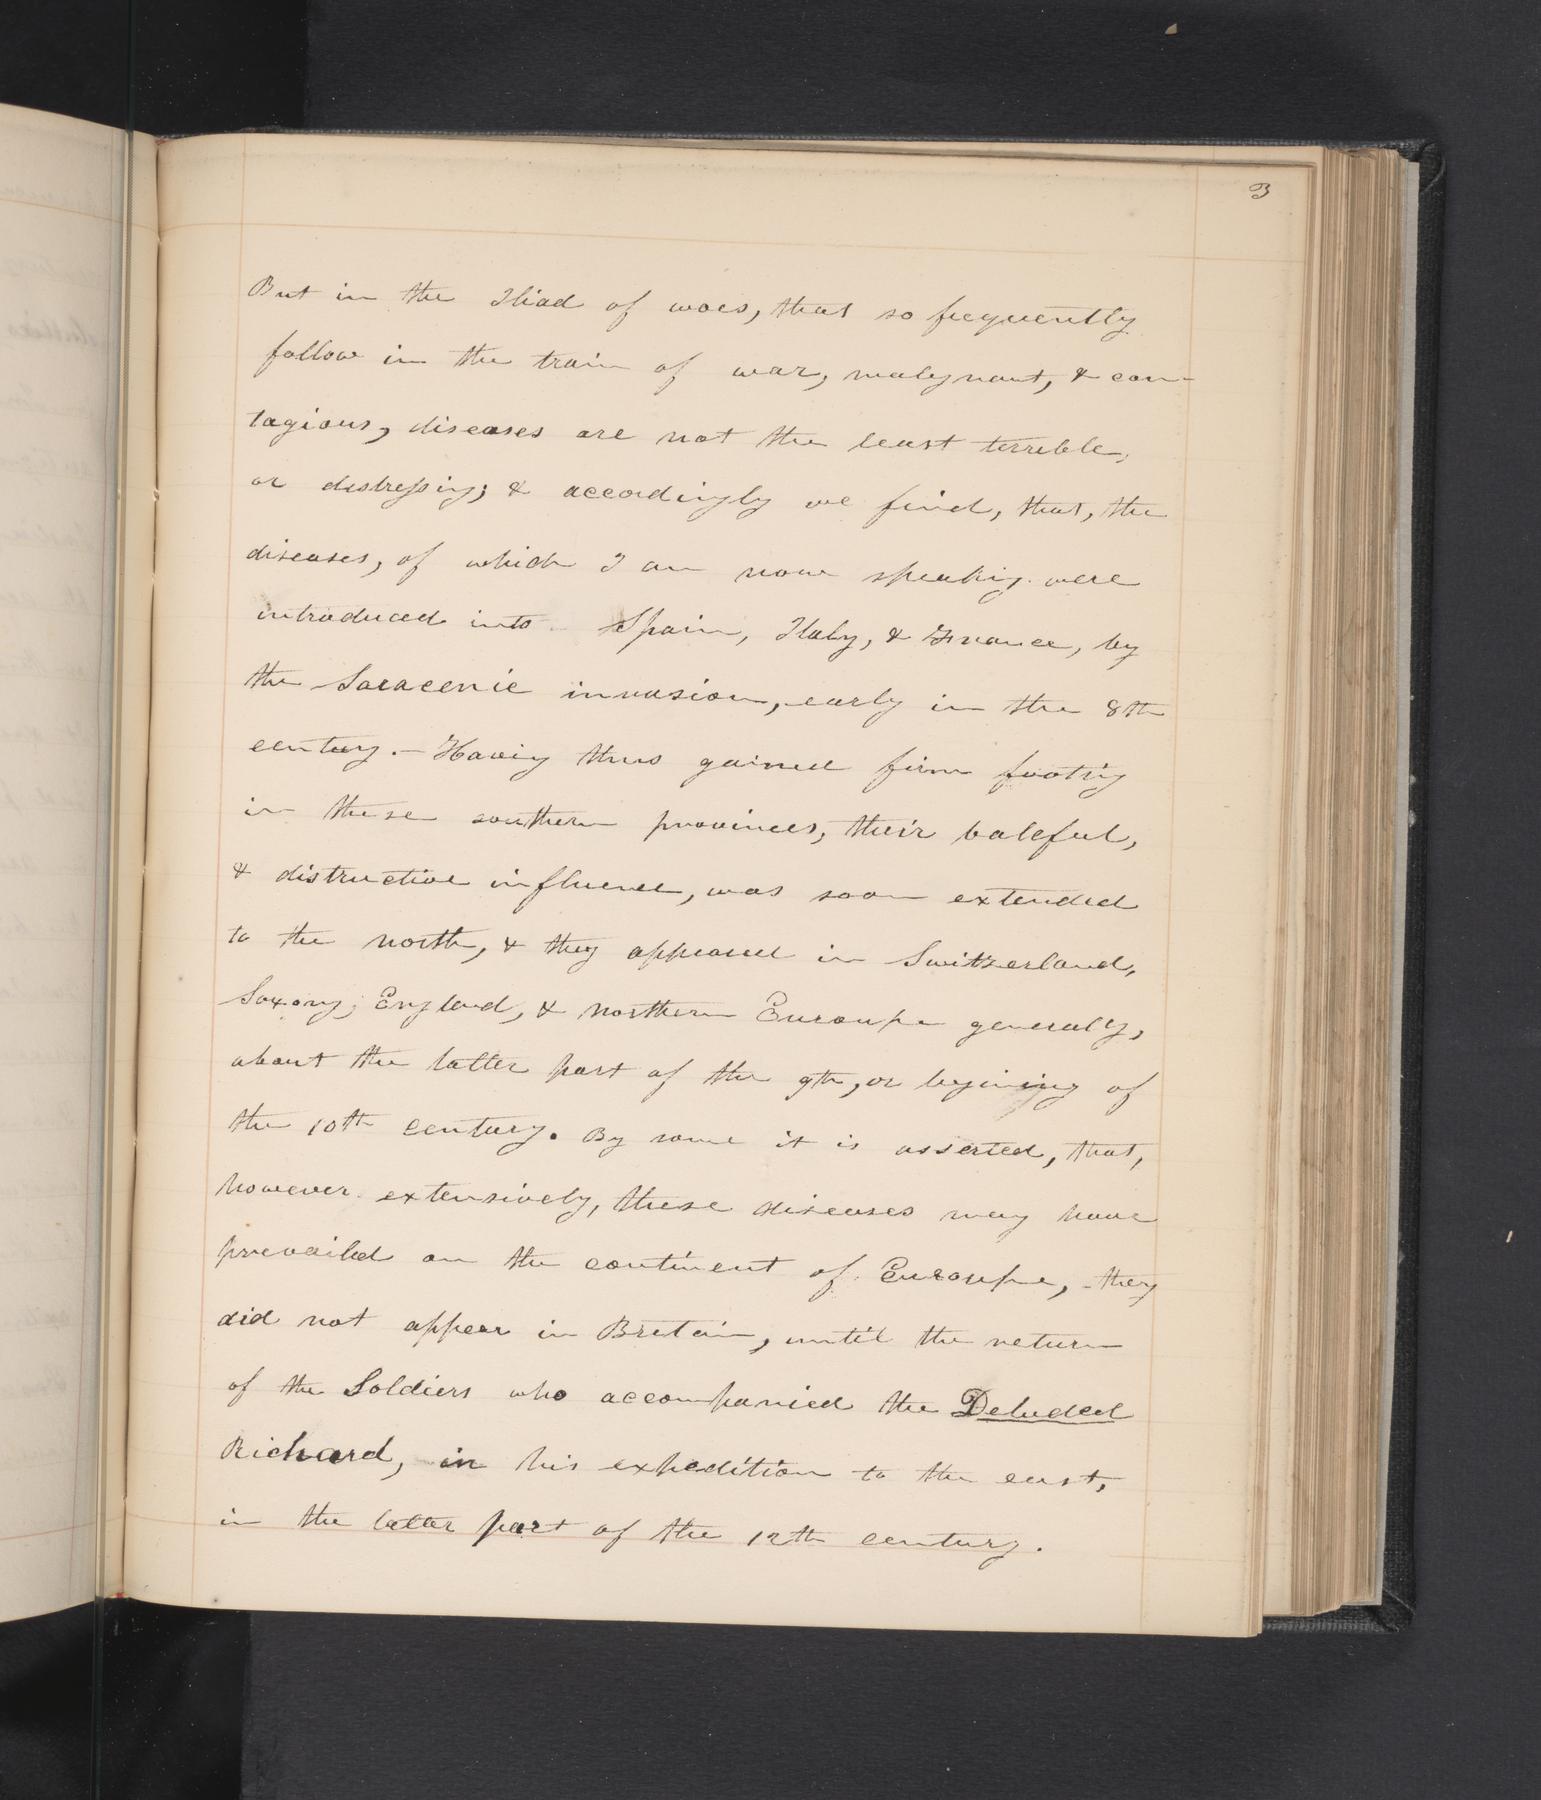 3
But in the Iliad of woes, that so frequently
follow in the train of war, malignant, & con-
tagious, diseases are not the least terrible,
or distressing; & accordingly we find, that, the
diseases, of which I am now speaking were
introduced into Spain, Italy, & France, by
the Saracenic invasion, early in the 8th
century. - Having thus gained firm footing
in these southern provinces, their baleful,
& distructive influence, was soon extended
to the north, & they appeared in Switzerland,
Saxony; England, & northern Euroupe generaly,
about the latter part of the 9th, or begining of
the 10th century. By some it is asserted, that,
however extensively, these diseases may have
prevailed on the continent of Euroupe, they
did not appear in Bretain, until the return
of the Soldiers who accompanied the Deluded
Richard, in his expedition to the east,
in the latter part of the 12th century.